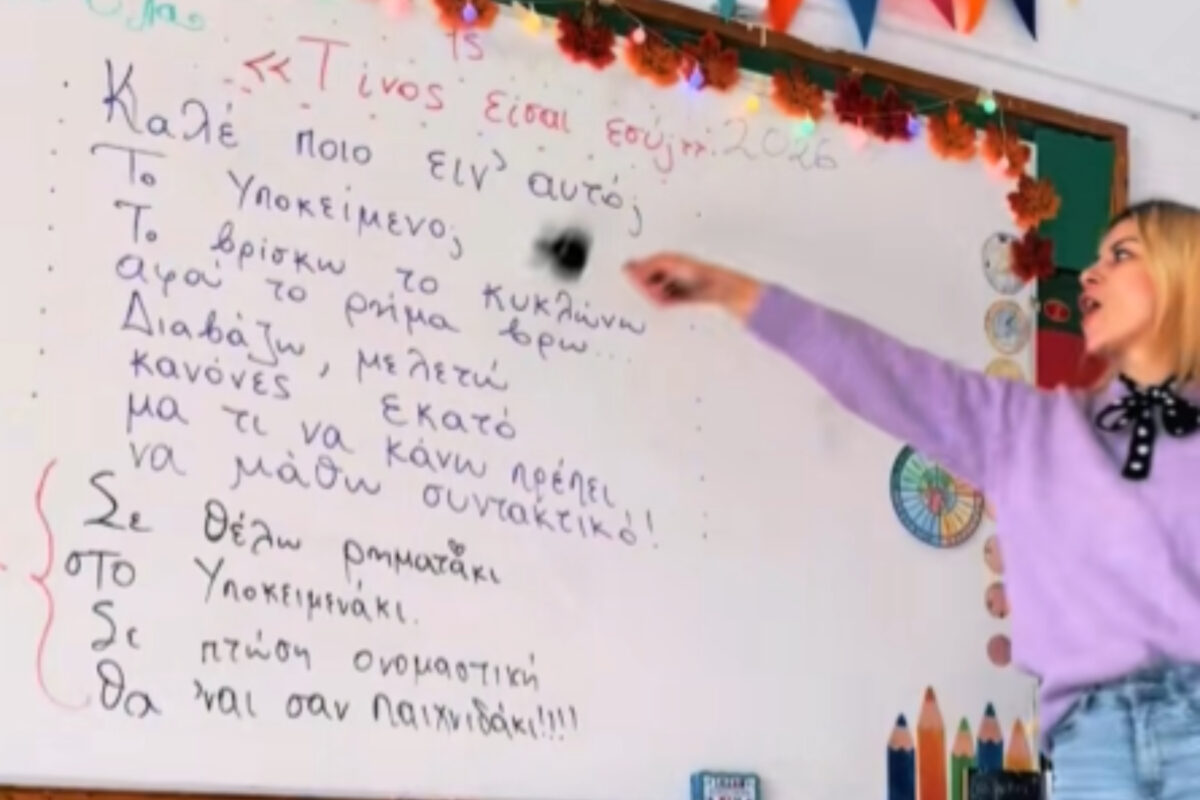 15
«Τίνος είσαι εσύ;»: 2026
Καλέ ποιο ειν' αυτό;
Το Υποκείμενο;
Το βρίσκω το κυκλώνω
αφού το ρήμα βρω...
Διαβάζω, μελετώ
κανόνες εκατό
μα τι να κάνω πρέπει
να μάθω συντακτικό!!
Σε θέλω ρηματάκι
στο Υποκειμενάκι.
Σε πτώση ονομαστική
θα 'ναι σαν παιχνιδάκι!!!!